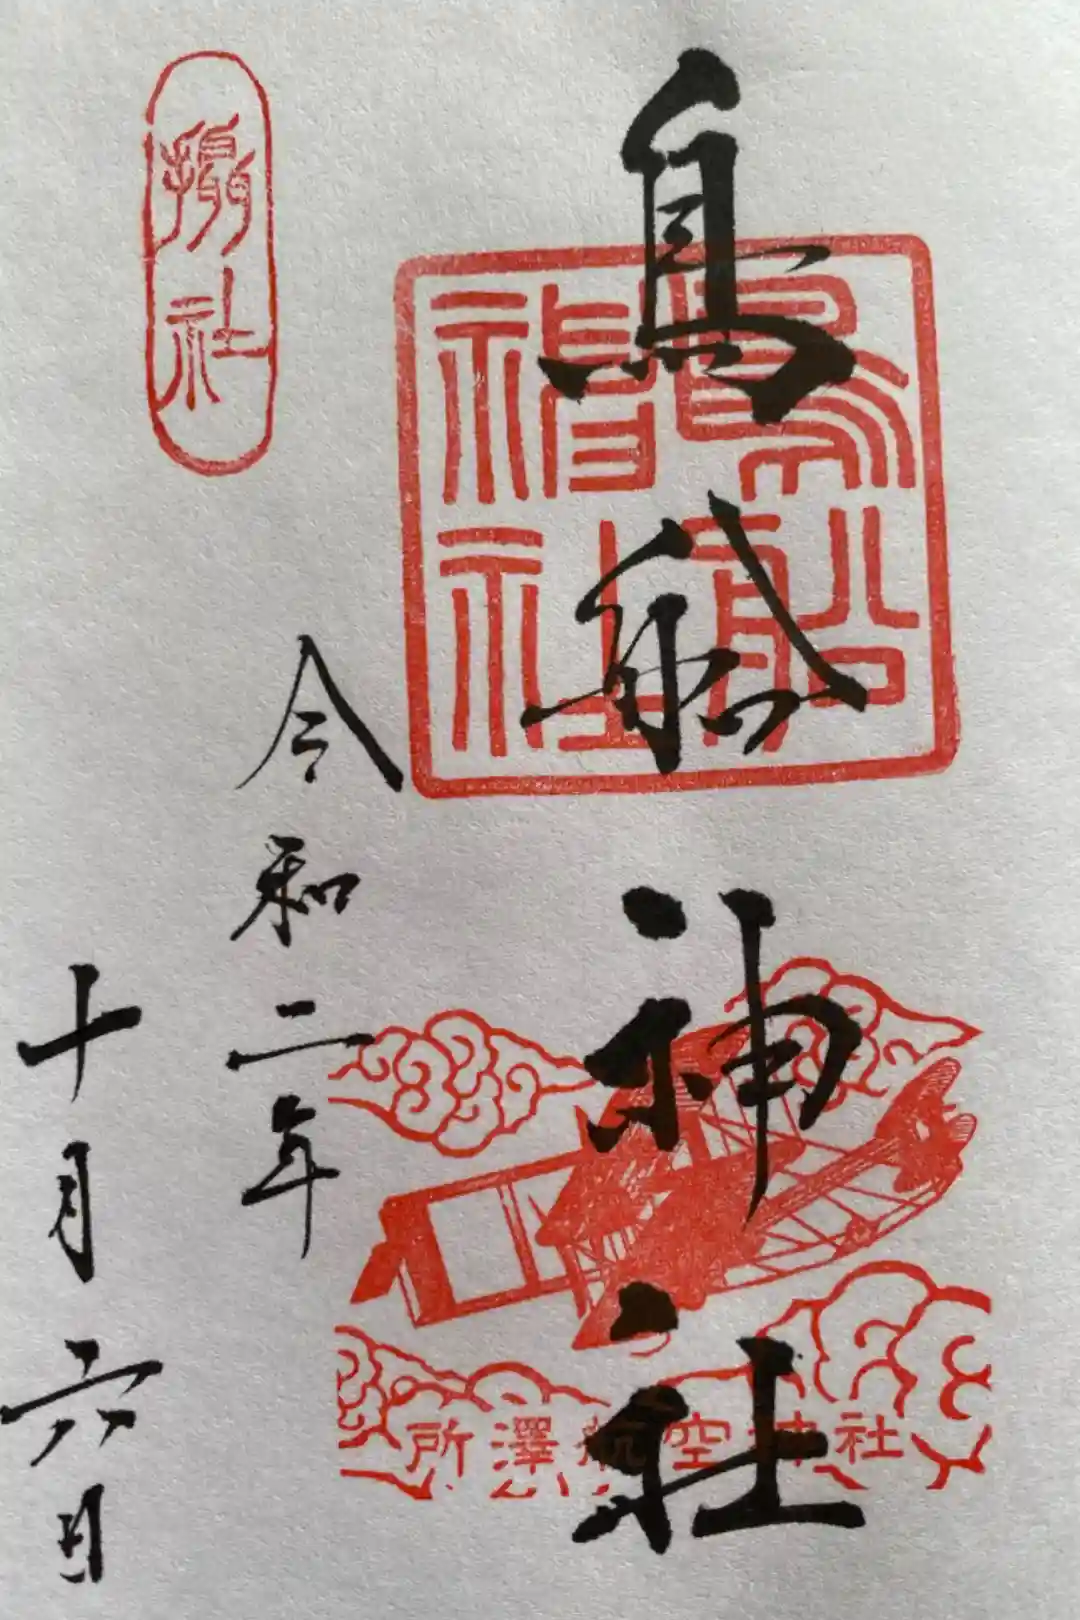 鳥舩神社
鳥船
神社
所澤航空神社
令和二年
十月六日
摂社